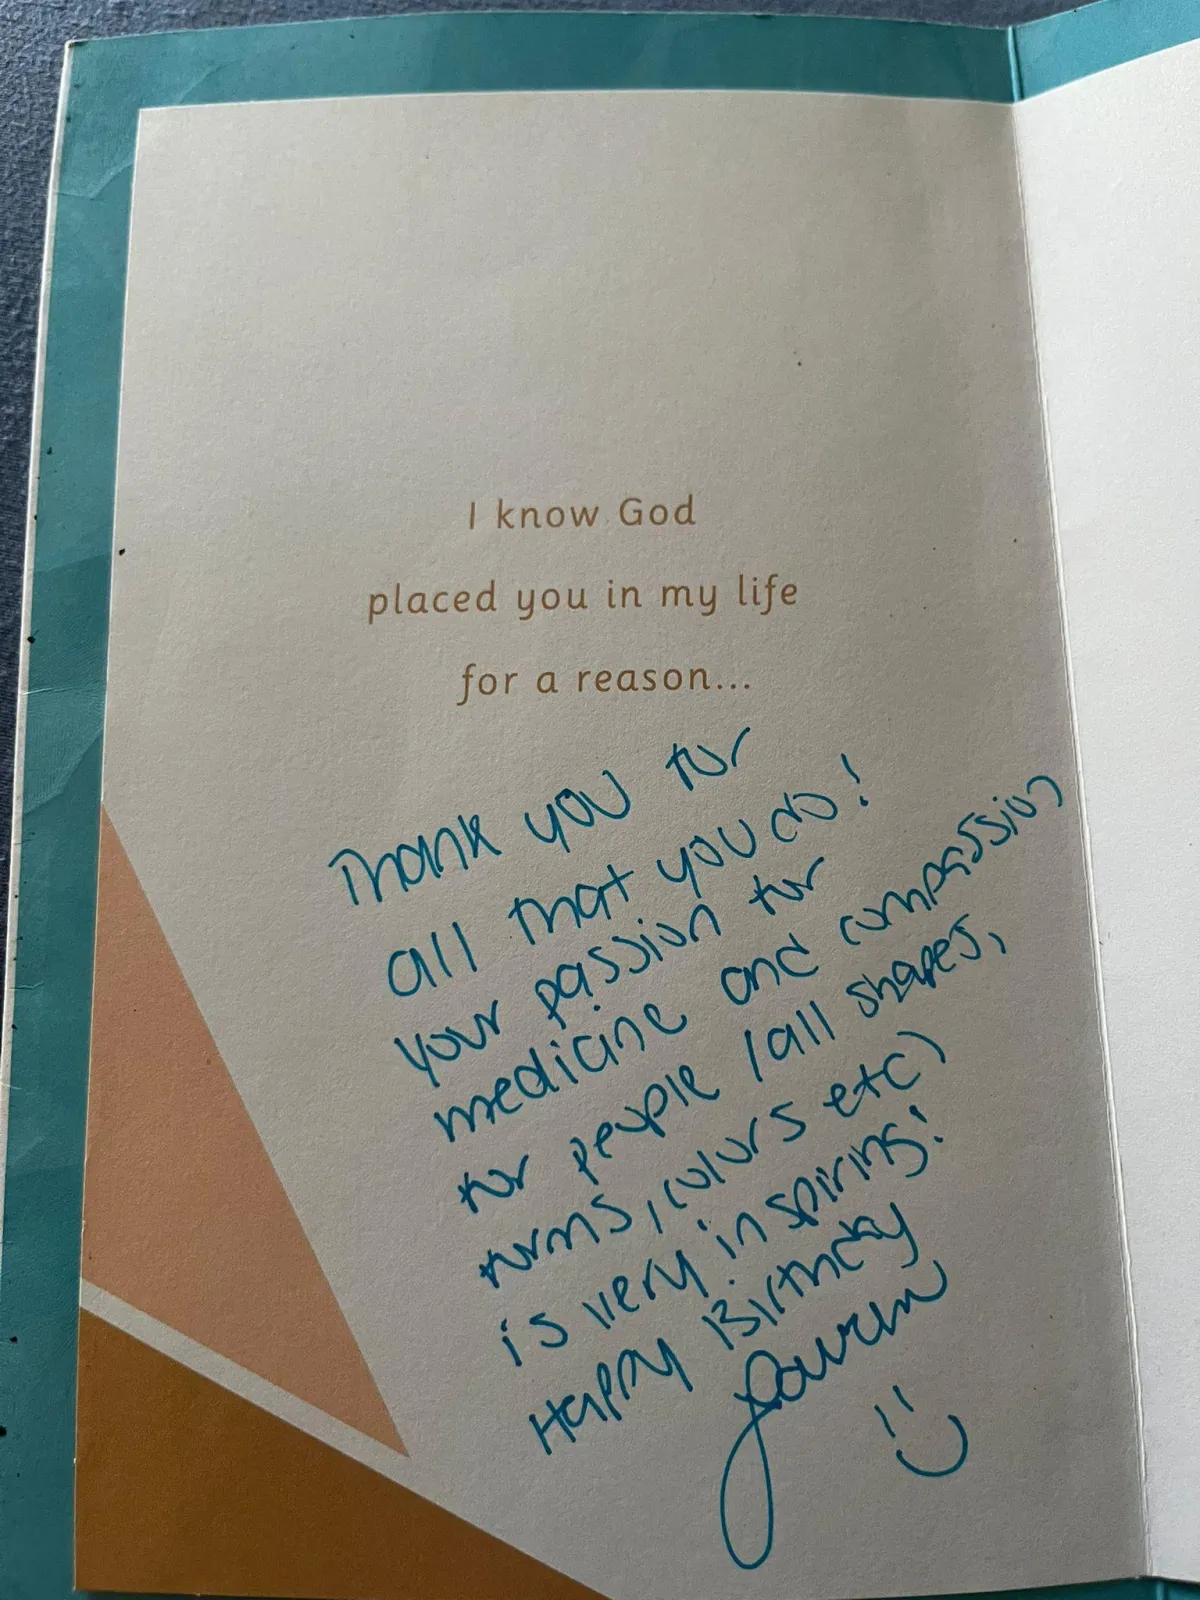 I know God
placed you in my life
for a reason...
Thank you for
all that you do!
your passion for
medicine and compassion
for people (all shapes,
forms, colors etc)
is very inspiring!
Happy Birthday
Lauren